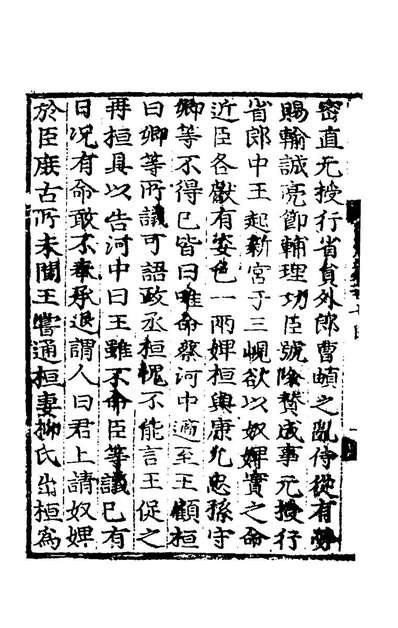 密直元授行省員外郎曹頔之亂侍從有勞
賜輸誠亮節輔理功臣號陞贊成事元授行
省郎中王起新宮于三峴欲以奴婢實之命
近臣各獻有姿色一兩婢桓與康允忠孫守
卿等不得已皆曰唯命蔡河中適至王顧桓
曰卿等所議可語政丞桓愧不能言王促之
再桓具以告河中曰王雖不命臣等議已有
日況有命敢不奉承退謂人曰君上請奴婢
於臣庶古所未聞王嘗通桓妻柳氏出桓爲